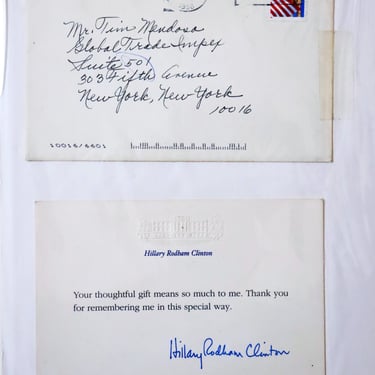 Mr. Tim Mendosa
Global Trade Impex
Suite 501
303 Fifth Avenue
New York, New York
10016
10016/6601
Hillary Rodham Clinton
Your thoughtful gift means so much to me. Thank you
for remembering me in this special way.
Hillary Rodham Clinton